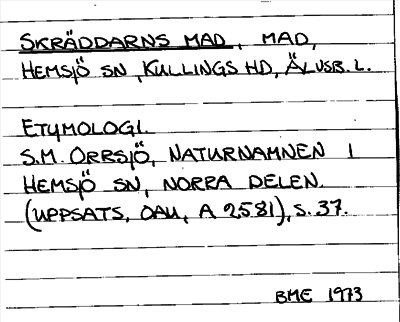 SKRÄDDARNS MAD, MAD,
HEMSJÖ SN, KULLINGS HD, ÄLVSB. L.
ETYMOLOGI.
S.M. ORRSJÖ, NATURNAMNEN I
HEMSJÖ SN, NORRA DELEN.
(UPPSATS, OAU, A 2581), S. 37.
BME 1973